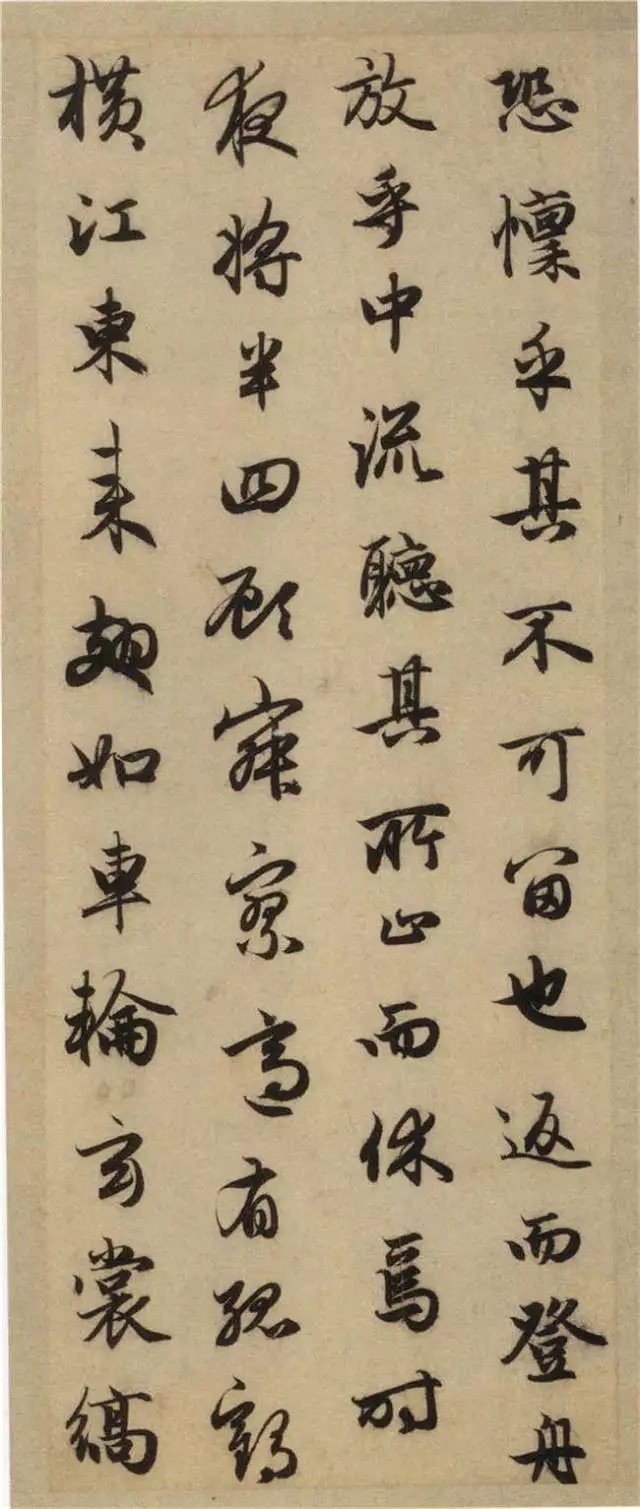 恐懍乎其不可留也返而登舟
放乎中流聽其所止而休焉时
夜將半四顧寂寥適有孤鶴
橫江東來翅如車輪玄裳縞